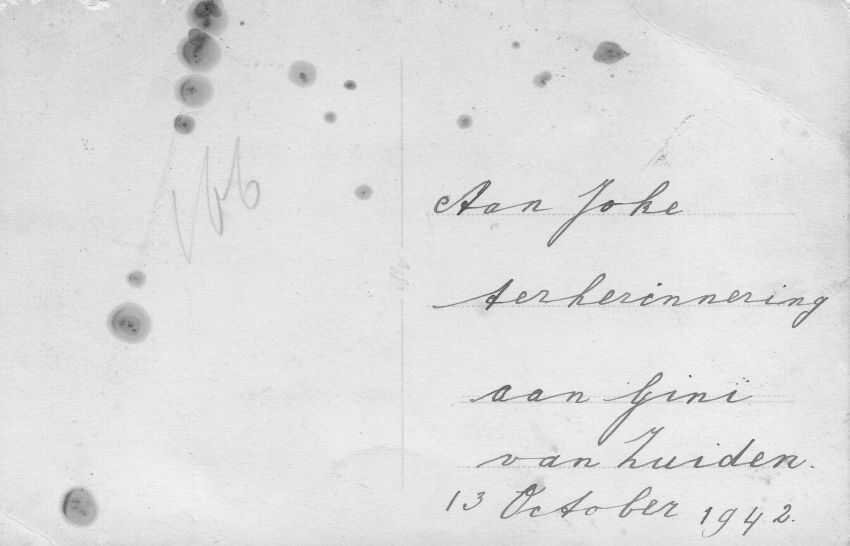 Aan Joke
ter herinnering
aan Gini
van Zuiden.
13 October 1942.